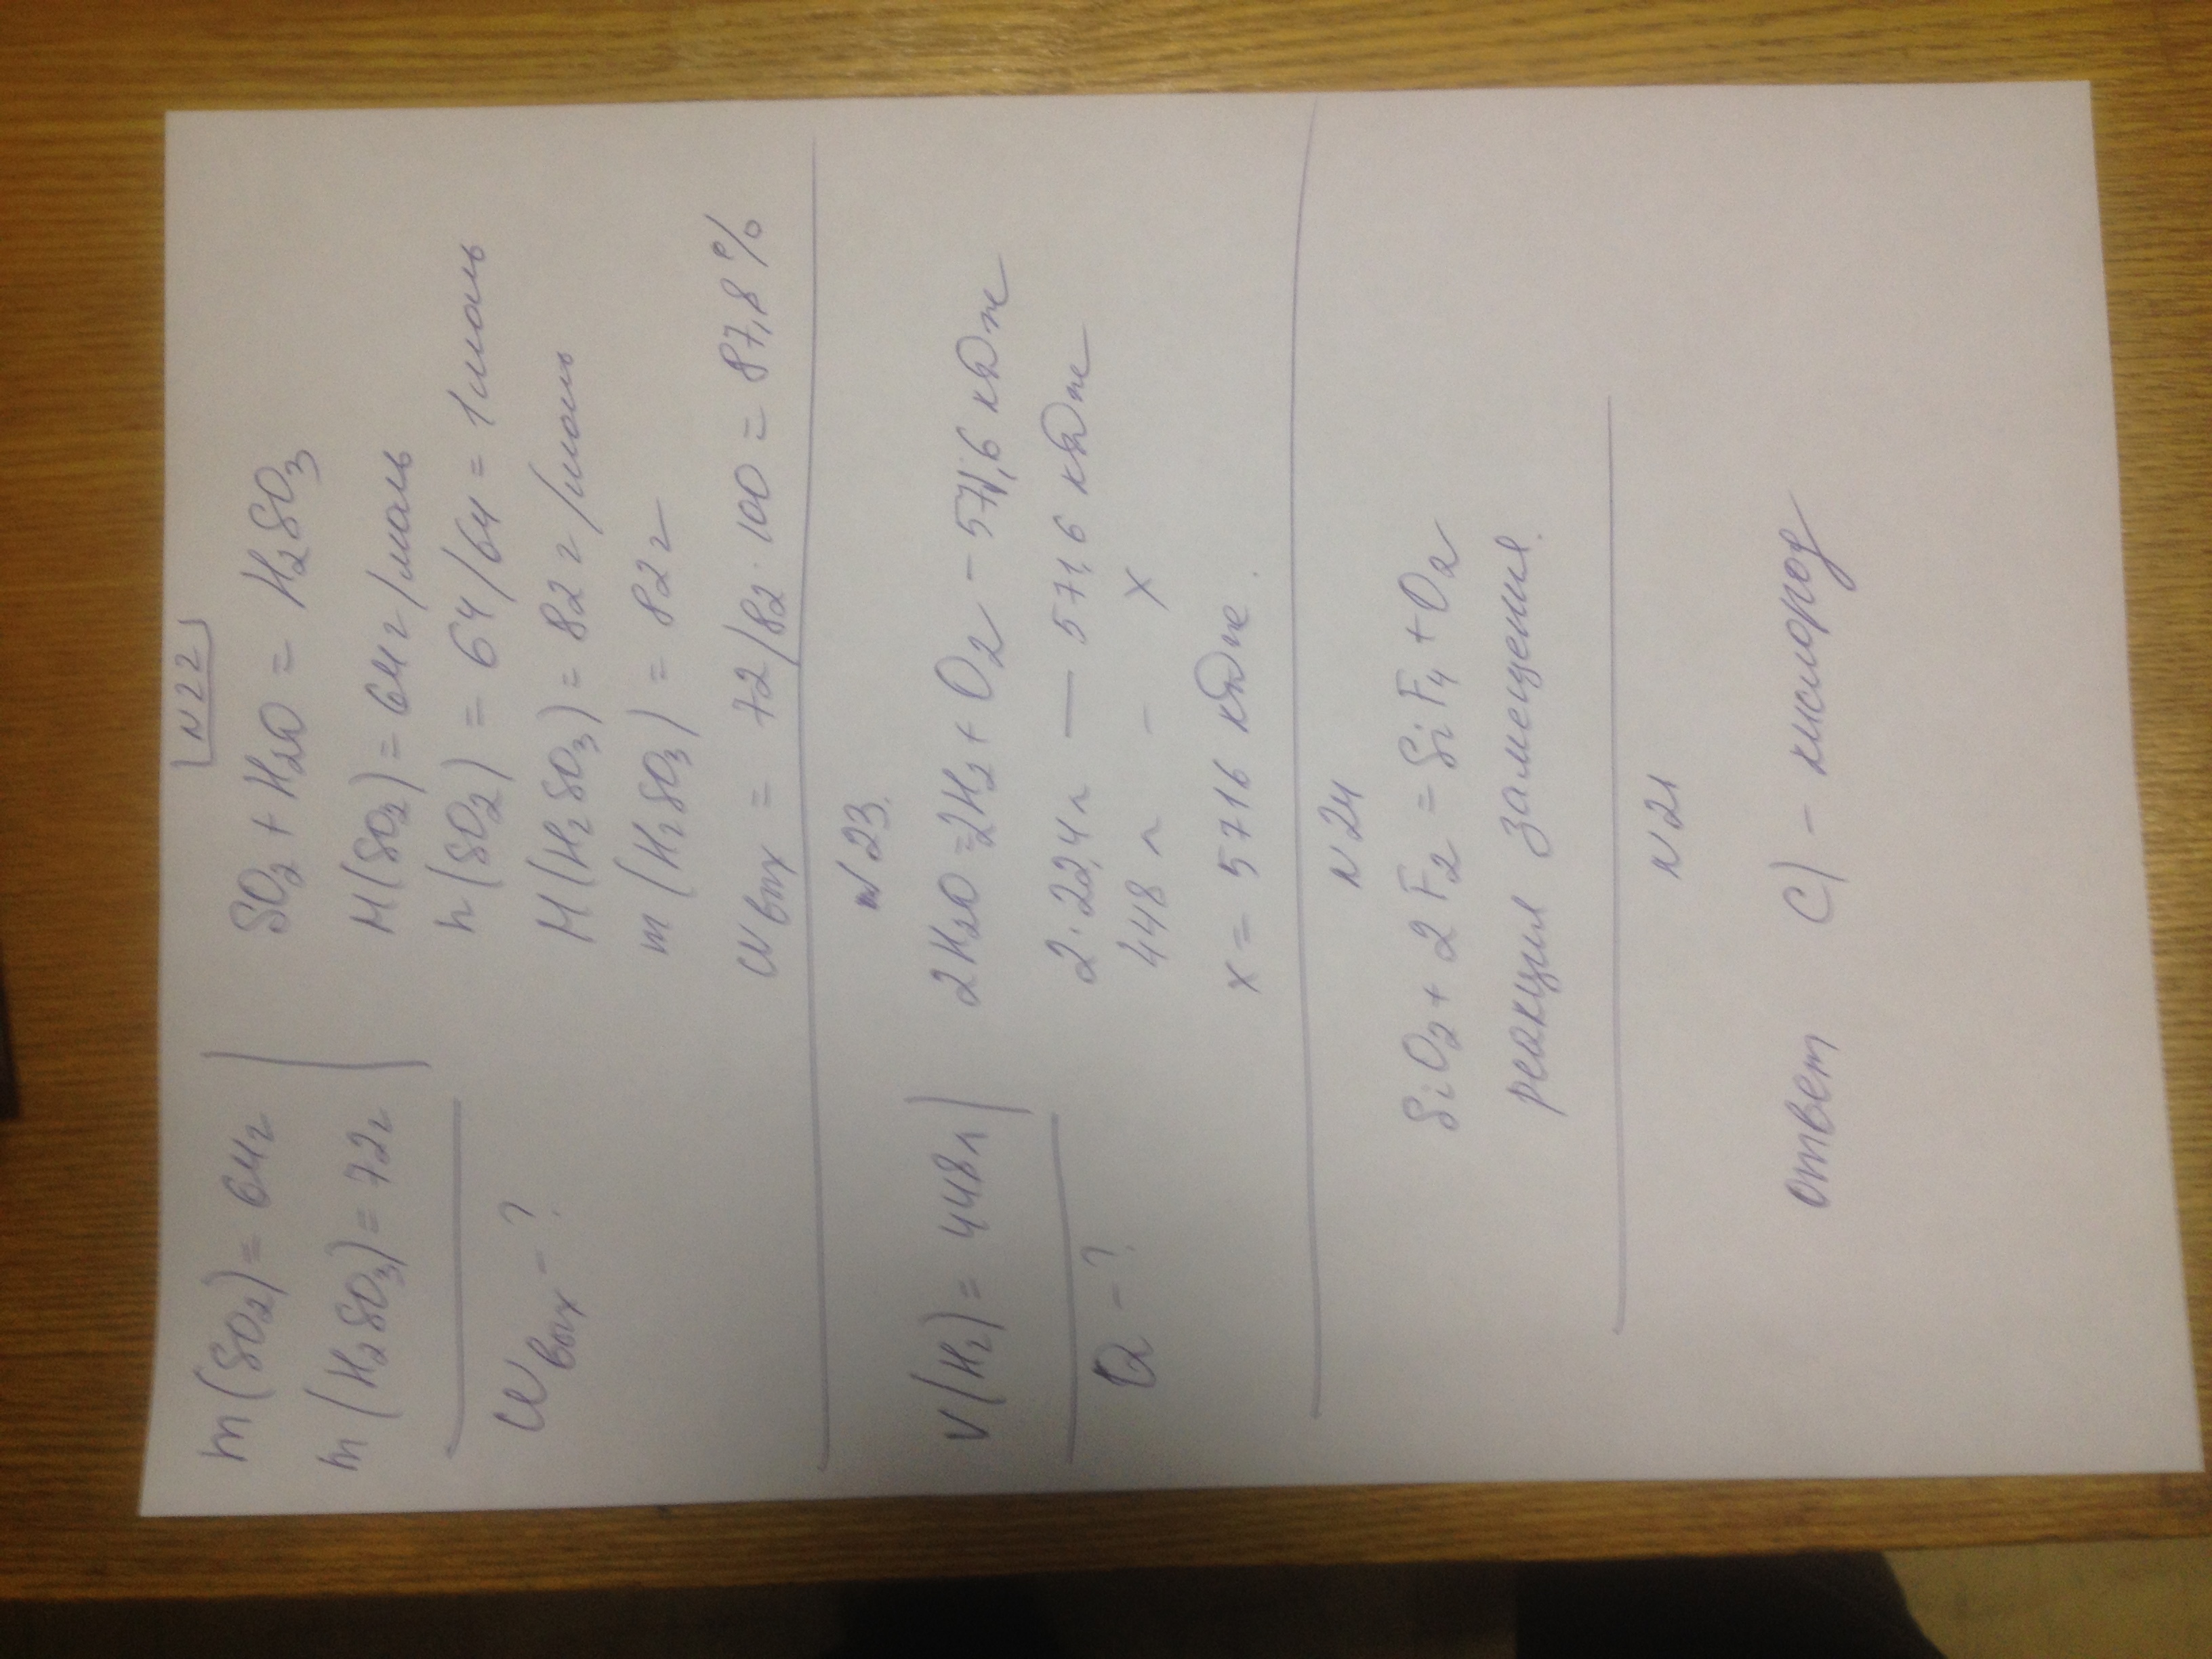 N22
m(SO2) = 64г
m(H2SO3) = 72г
Wвых - ?
SO2 + H2O = H2SO3
M(SO2) = 64 г/моль
n(SO2) = 64/64 = 1 моль
M(H2SO3) = 82 г/моль
m(H2SO3) = 82 г
Wвых = 72/82 · 100 = 87,8 %
N23.
V(H2) = 448л
Q - ?
2H2O = 2H2 + O2 - 571,6 кДж
2·22,4л — 571,6 кДж
448 л - x
x = 5716 кДж.
N24
SiO2 + 2F2 = SiF4 + O2
реакция замещения.
N21
ответ C) - кислород